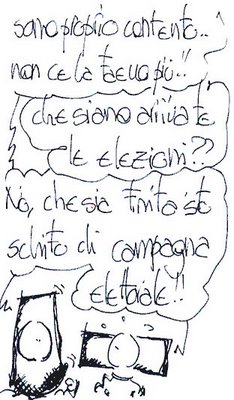 sono proprio contento..
non ce la facevo più!!
che siano arrivate
le elezioni??
No, che sia finita sto
schifo di campagna
elettorale!!